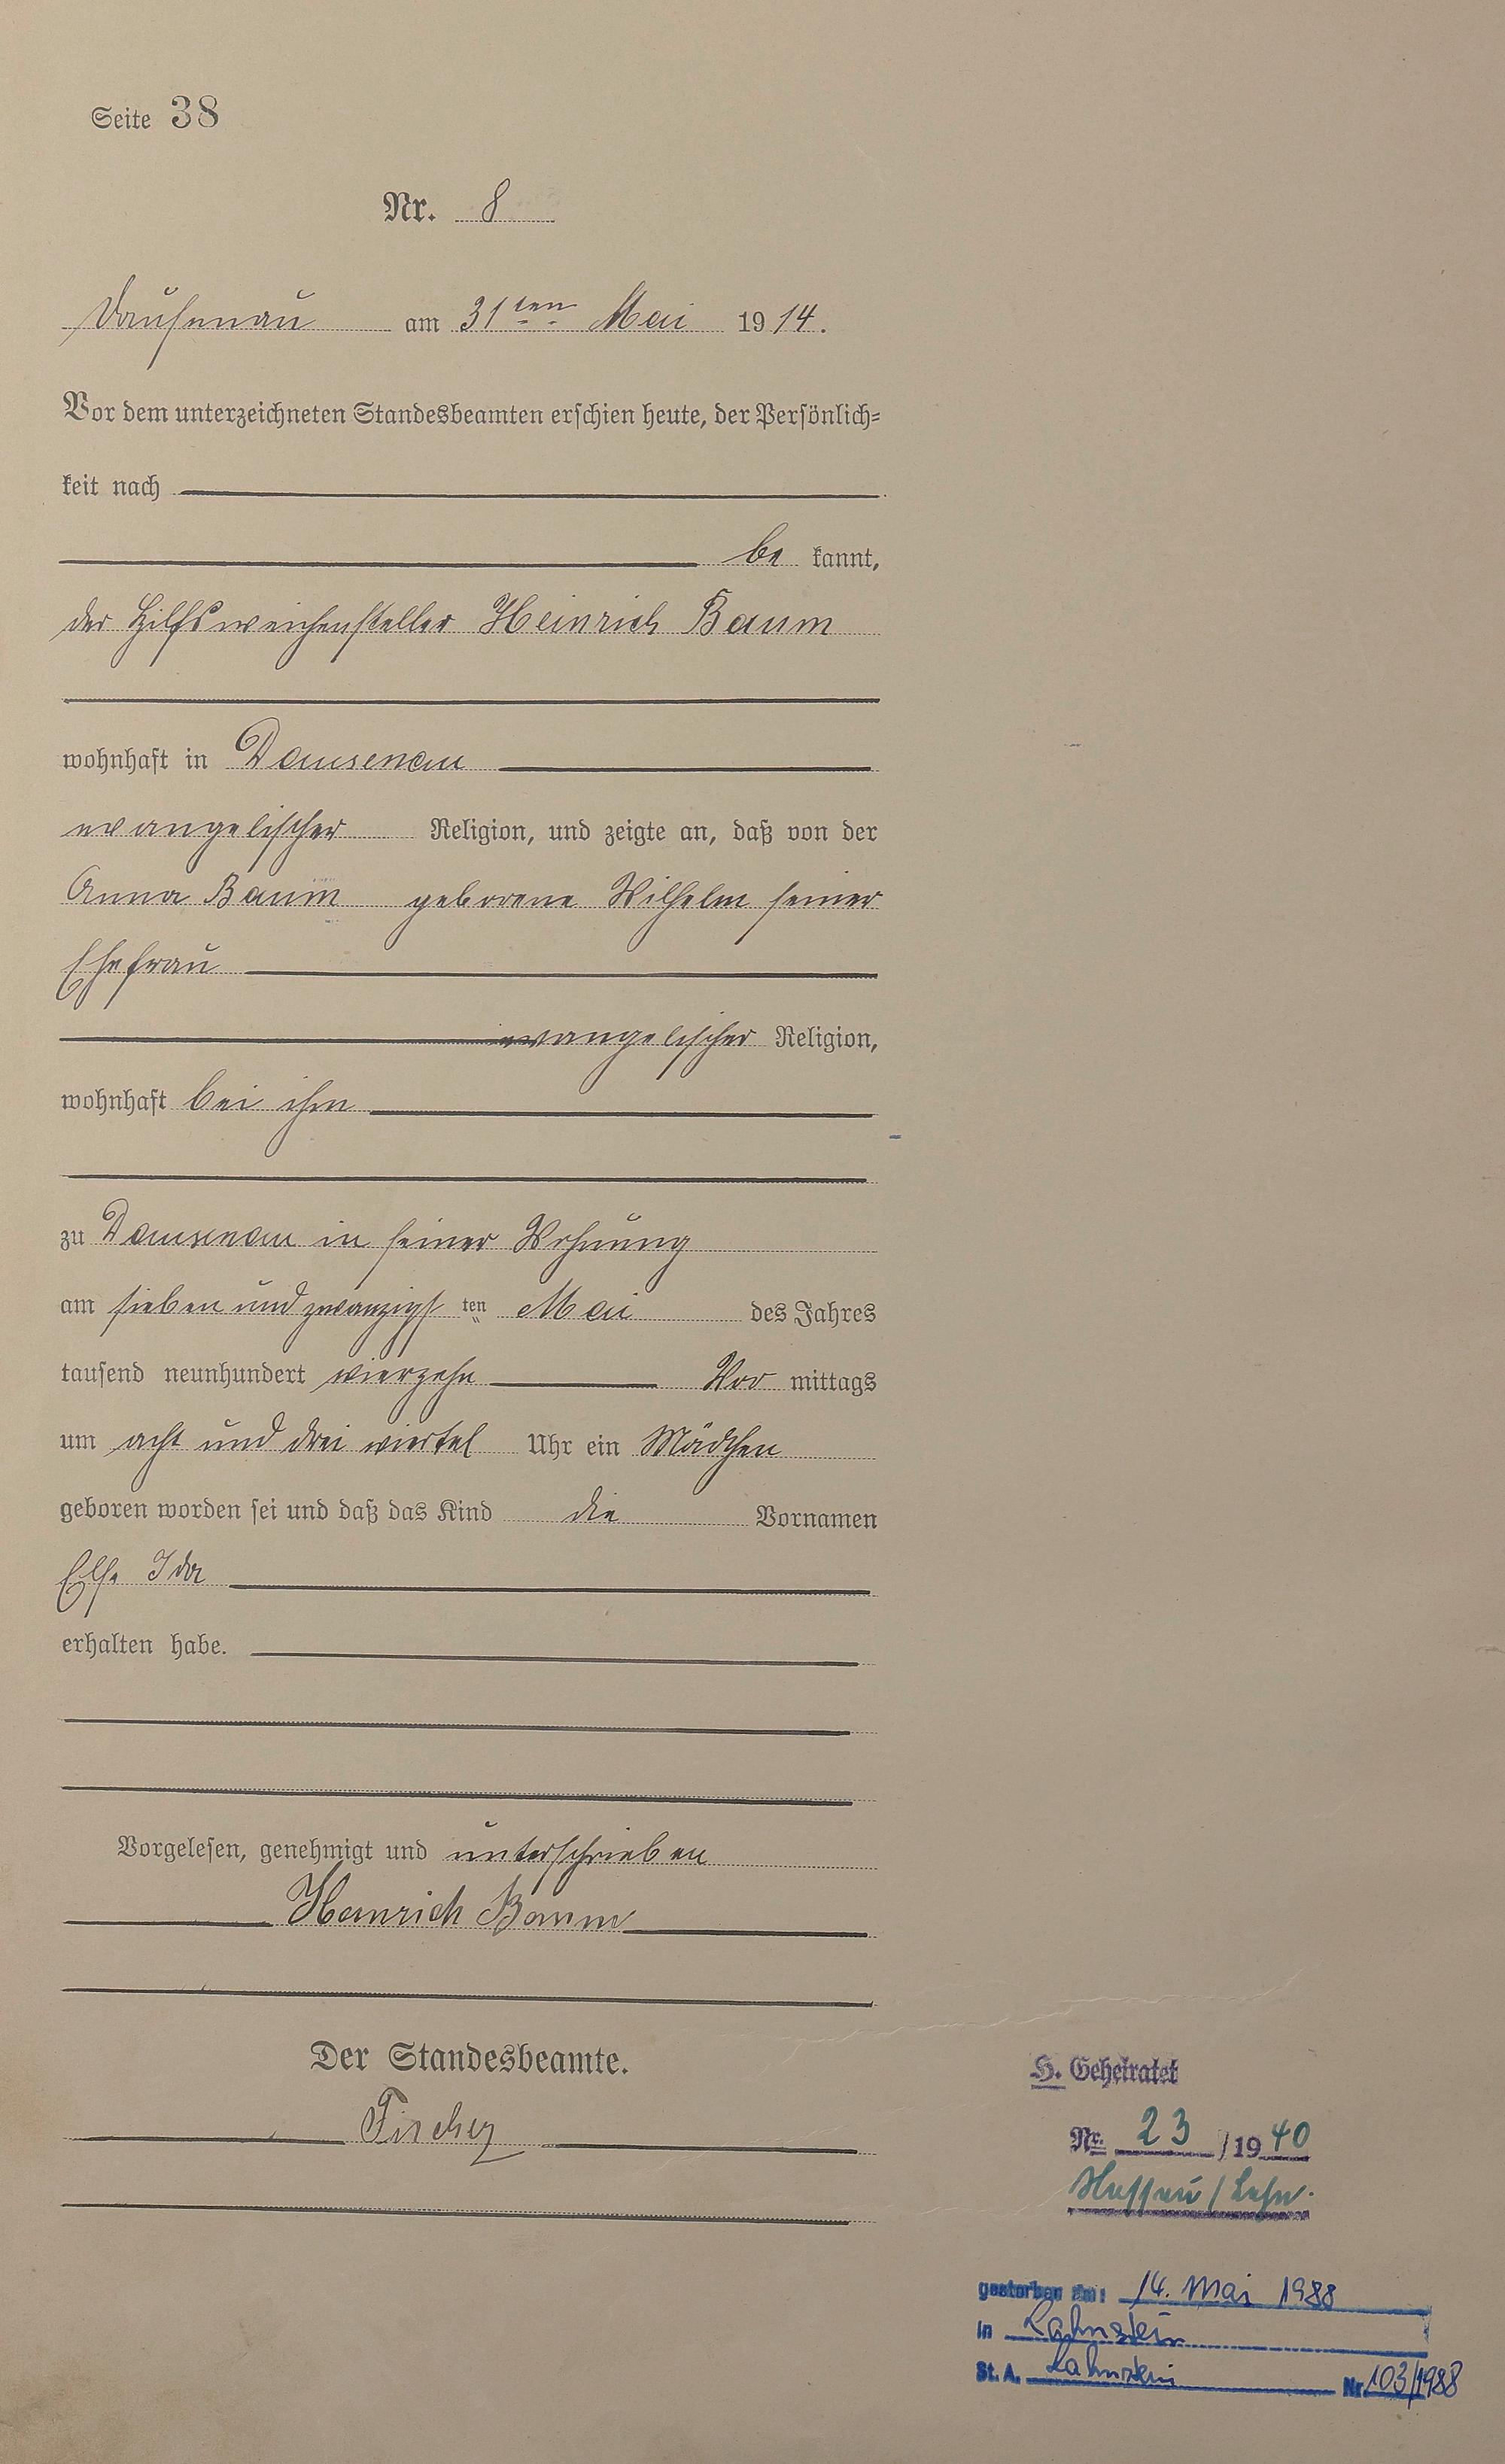 Seite 38
Nr. 8
Dausenau am 31ten Mai 1914.
Vor dem unterzeichneten Standesbeamten erschien heute, der Persönlich-
keit nach
be kannt,
der Hilfsweichensteller Heinrich Baum
wohnhaft in Dausenau
evangelischer Religion, und zeigte an, daß von der
Anna Baum geborene Wilhelm seiner
Ehefrau
evangelischer Religion,
wohnhaft bei ihm
zu Dausenau in seiner Wohnung
am sieben und zwanzigsten Mai des Jahres
tausend neunhundert vierzehn Vor mittags
um acht und drei viertel Uhr ein Mädchen
geboren worden sei und daß das Kind die Vornamen
Else Ida
erhalten habe.
Vorgelesen, genehmigt und unterschrieben
Heinrich Baum
Der Standesbeamte.
Fischer
H. Geheiratet
Nr. 23 / 1940
Nassau / Lahn.
gestorben am: 14. Mai 1988
in Lahnstein
St. A. Lahnstein Nr. 103/1988